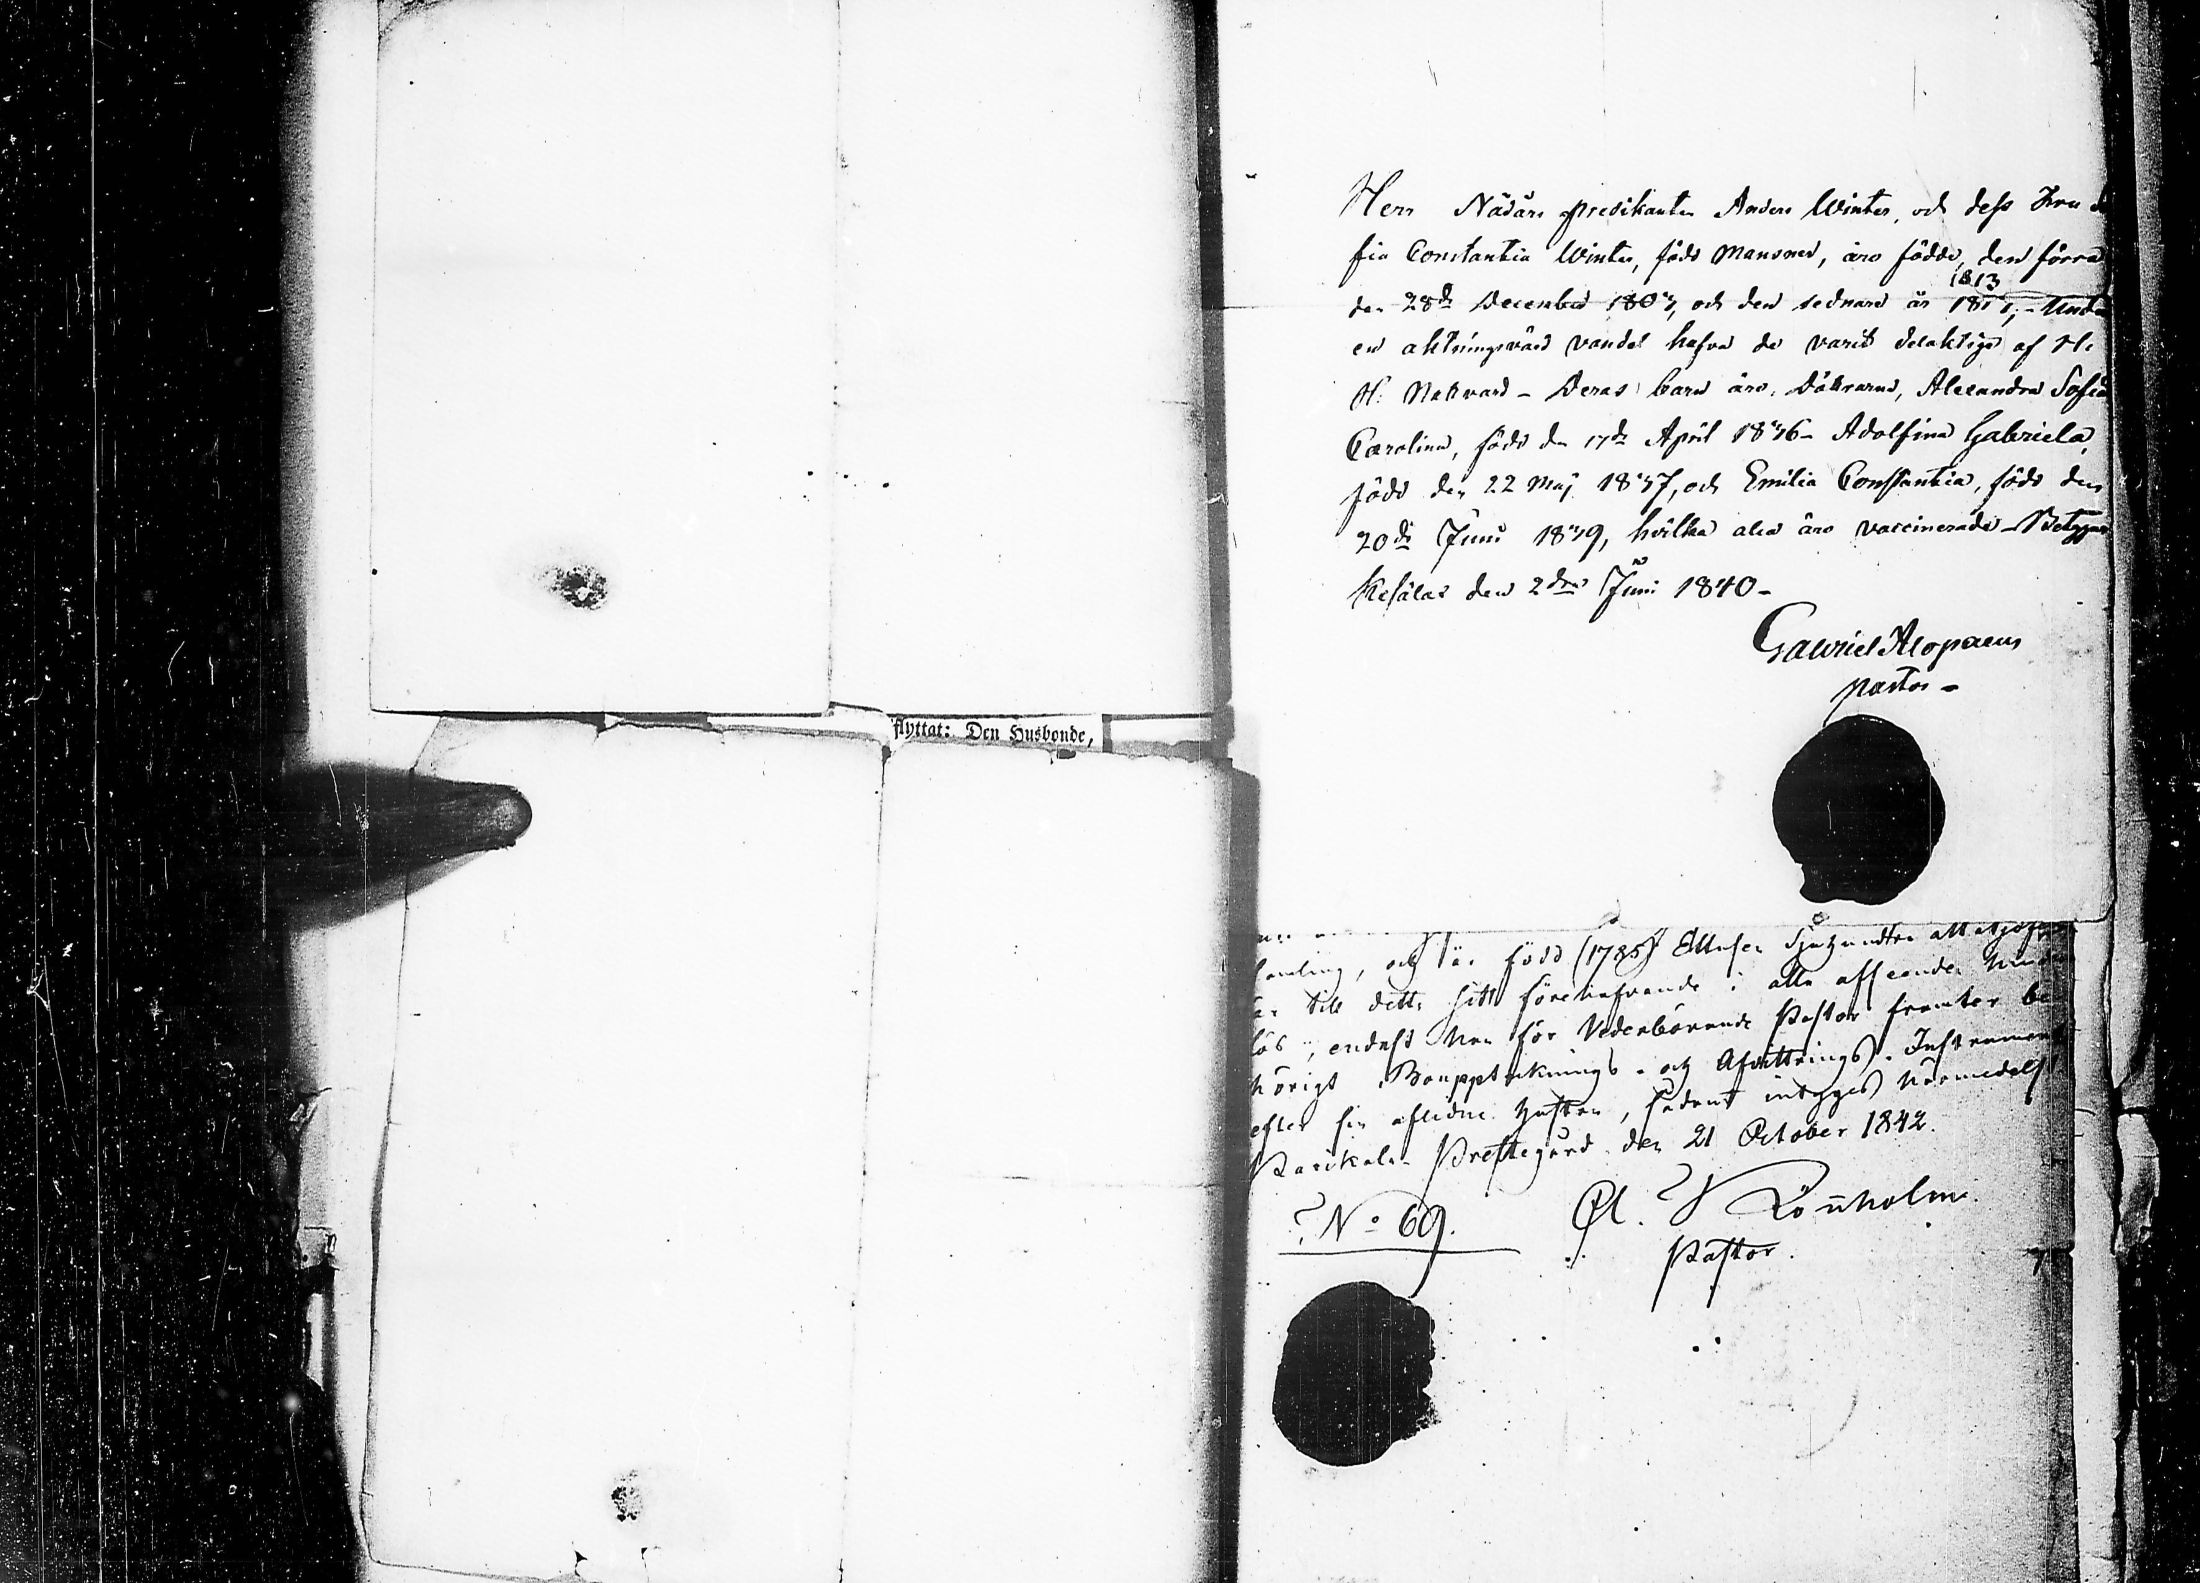 flyttat: Den Husbonde,
Herr Nådårs predikanten Anders Winter, och dess Fru So
fia Constantia Winter, född Mansner, äro födde, den förra
1813
den 28de December 1803, och den sednare år 1811, - Under
en aktningsvärd vandel hafva de varit delaktige af H.
H. Nattvard - Deras barn äro, Döttrarne, Alexandra Sofia
Carolina, född den 17de April 1836 - Adolfina Gabriela,
född den 22 Maj 1837, och Emilia Constantia, född den
20de Juni 1839, hvilka alla äro vaccinerade - Betygar
Kesälax den 2dra Juni 1840 -
Gabriel Alopaeus
pastor -
och är född (1785)
till detta sitt förehafvande i alla afseenden hinder
lös, endast han för Vederbörande Pastor framter be
hörigt Bouppteknings- och Afvittrings-Instrument
efter sin aflidne hustru, sådant intygges härmedelst
Parikala Prestegård den 21 October 1842.
No 69.
Lönnholm
Pastor.